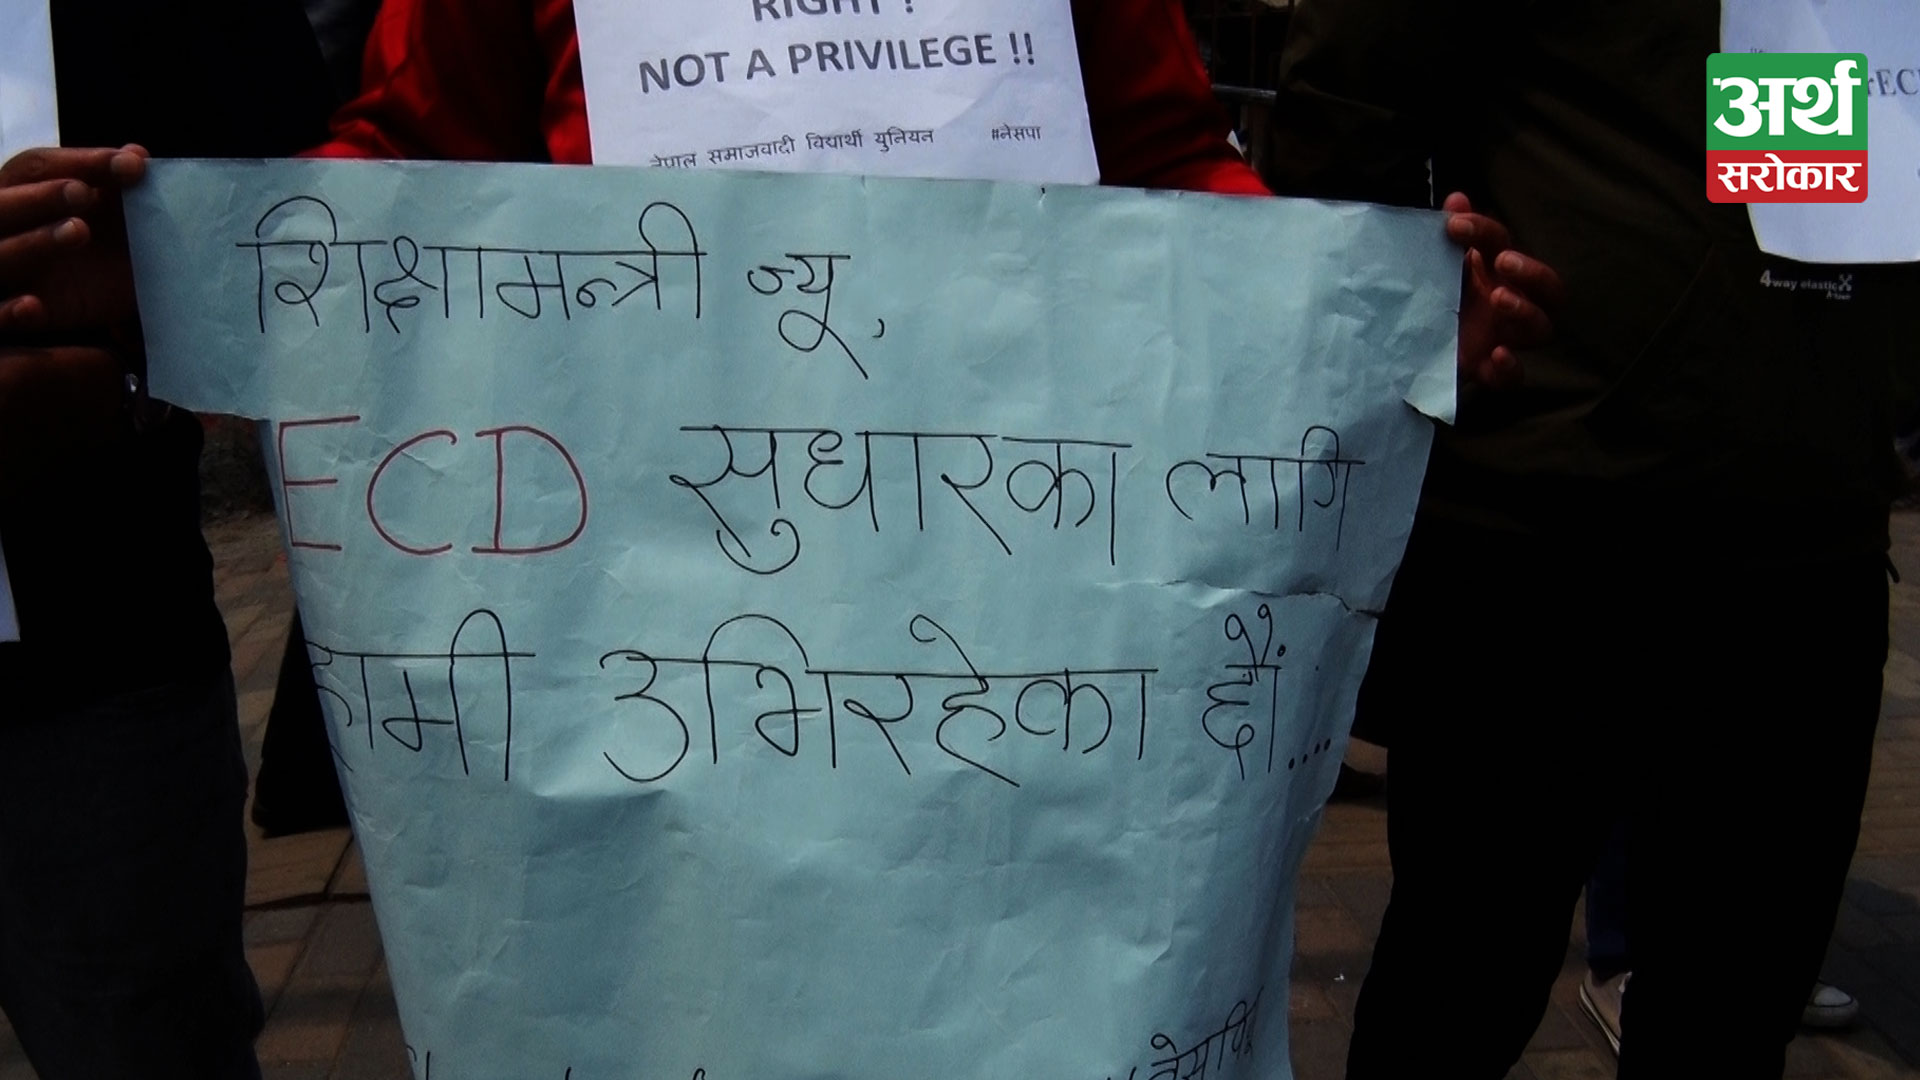 RIGHT !
NOT A PRIVILEGE !!
नेपाल समाजवादी विद्यार्थी युनियन #नेसपा
अर्थ
सरोकार
4way elastic
शिक्षामन्त्री ज्यू,
ECD सुधारका लागि
हामी उभिरहेका छौं....